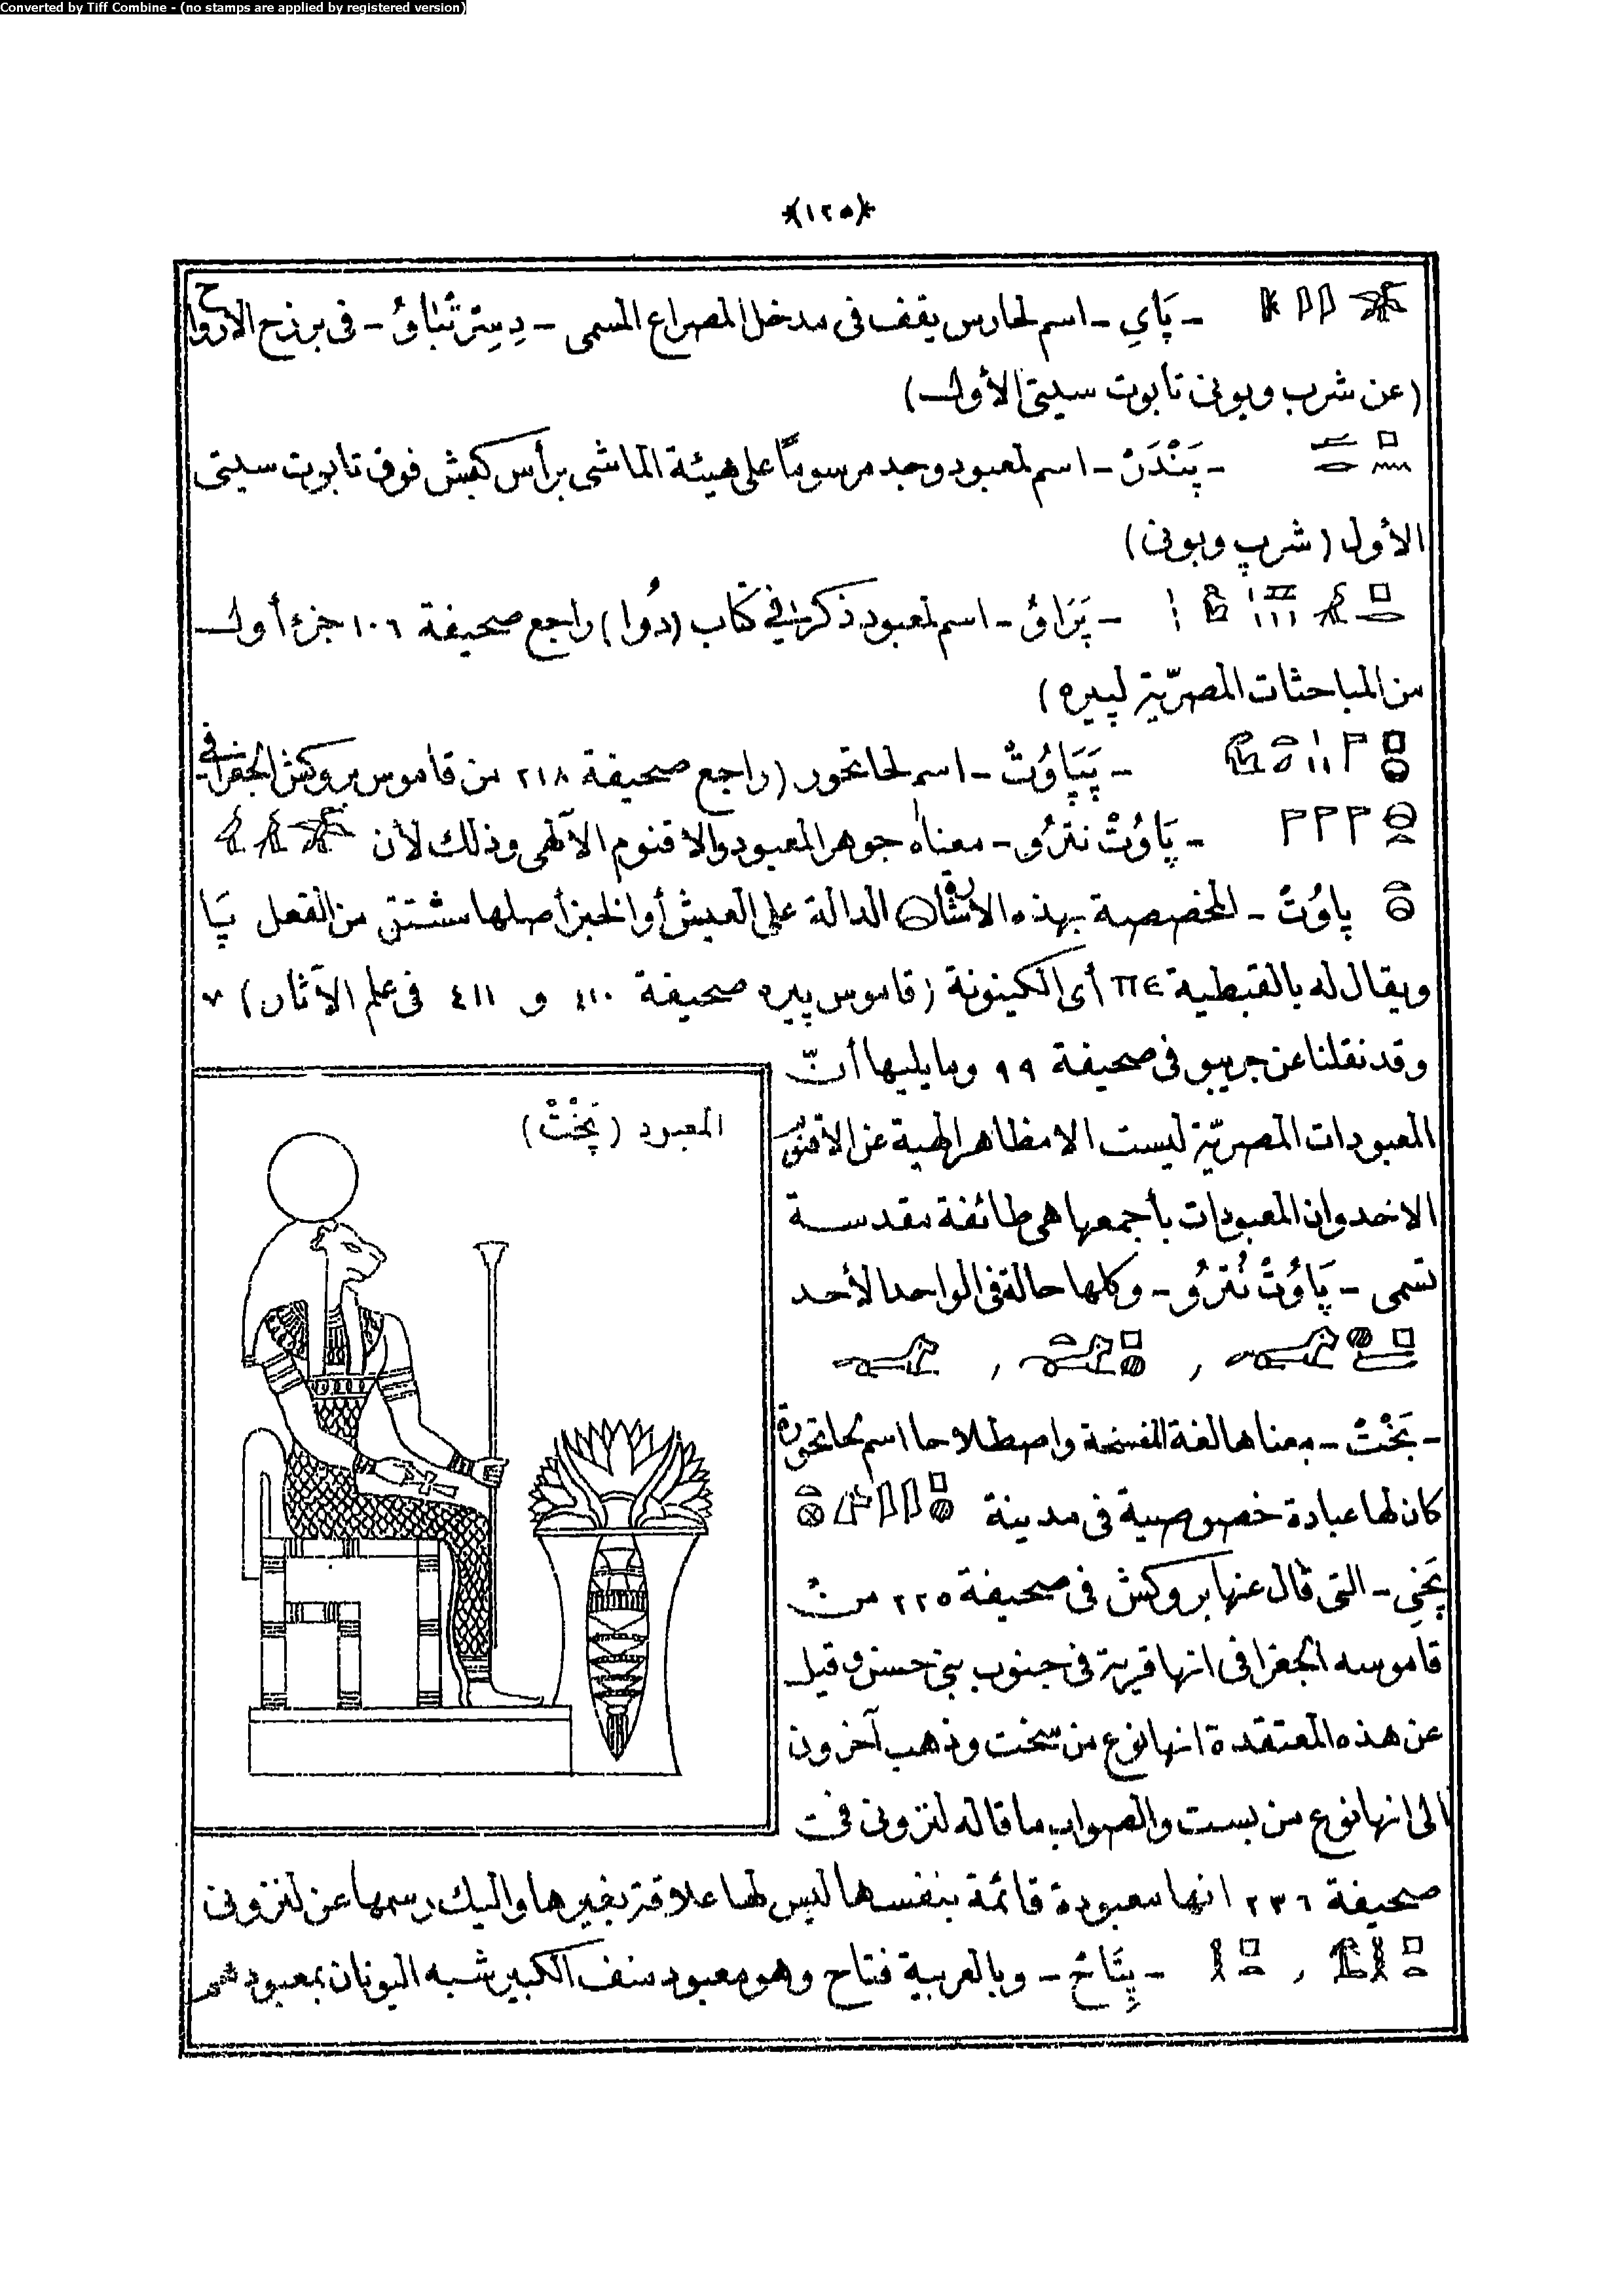 Converted by Tiff Combine - (no stamps are applied by registered version)
*(١٢٥)*
- پَاىِ - اسم لحارس يقف فى مدخل المصراع المسمى - - فى برزخ الارواح
(عن شرب وبونى تابوت سيتى الأول)
- پَنْدَرْ - اسم لمعبود وجد مرسومًا على هيئة الماشى برأس كبش فوق تابوت سيتى
الأول (شرپ وبونى)
- پَرَاوُ - اسم لمعبود ذكر فى كتاب (دُوا) راجع صحيفة ١٠٦ جزء أول
من المباحثات المصريّة لپيره)
- پَپَاوُتْ - اسم لحاتحور (راجع صحيفة ٢١٨ من قاموس بروكش الجغرافى
- پَاوُتْ نترُو - معناه جوهر المعبود والاقنوم الآلهى وذلك لأن
پاوُتْ - المخصصة بهذه الاشارة الدالة على العيش أو الخبز أصلها مشتق من الفعل پَا
ويقال له بالقبطية ⲡⲉ أى الكينونة (قاموس پيره صحيفة ٤١٠ و ٤١١ فى علم الآثار)
وقد نقلنا عن جريبو فى صحيفة ٩٩ وما يليها أنّ
المعبودات المصريّة ليست الا مظاهر الهية عن الاقنوم
الاحد وان المعبودات بأجمعها هى طائفة مقدسة
تسمى - پَاوُتْ نُترُو - وكلها حالة فى الواحد الأحد
المعبود (پَخْتْ)
, ,
- پَخْتْ - معناها لغة واصطلاحا اسم لحاتحورة
كان لها عبادة خصوصية فى مدينة
پَخِى - التى قال عنها بروكش فى صحيفة ٢٢٥ من
قاموسه الجغرافى انها قرية فى جنوب بنى حسن وقيل
عن هذه المعتقدة انها نوع من سخت وذهب آخرون
الى انها نوع من بست والصواب ما قاله لنزونى فى
صحيفة ٢٣٦ انها معبودة قائمة بنفسها ليس لها علاقة بغيرها واليك رسمها عن لنزونى
, - پِتَاحْ - وبالعربية فتاح وهو معبود منف الكبير شبه اليونان بمعبودهم